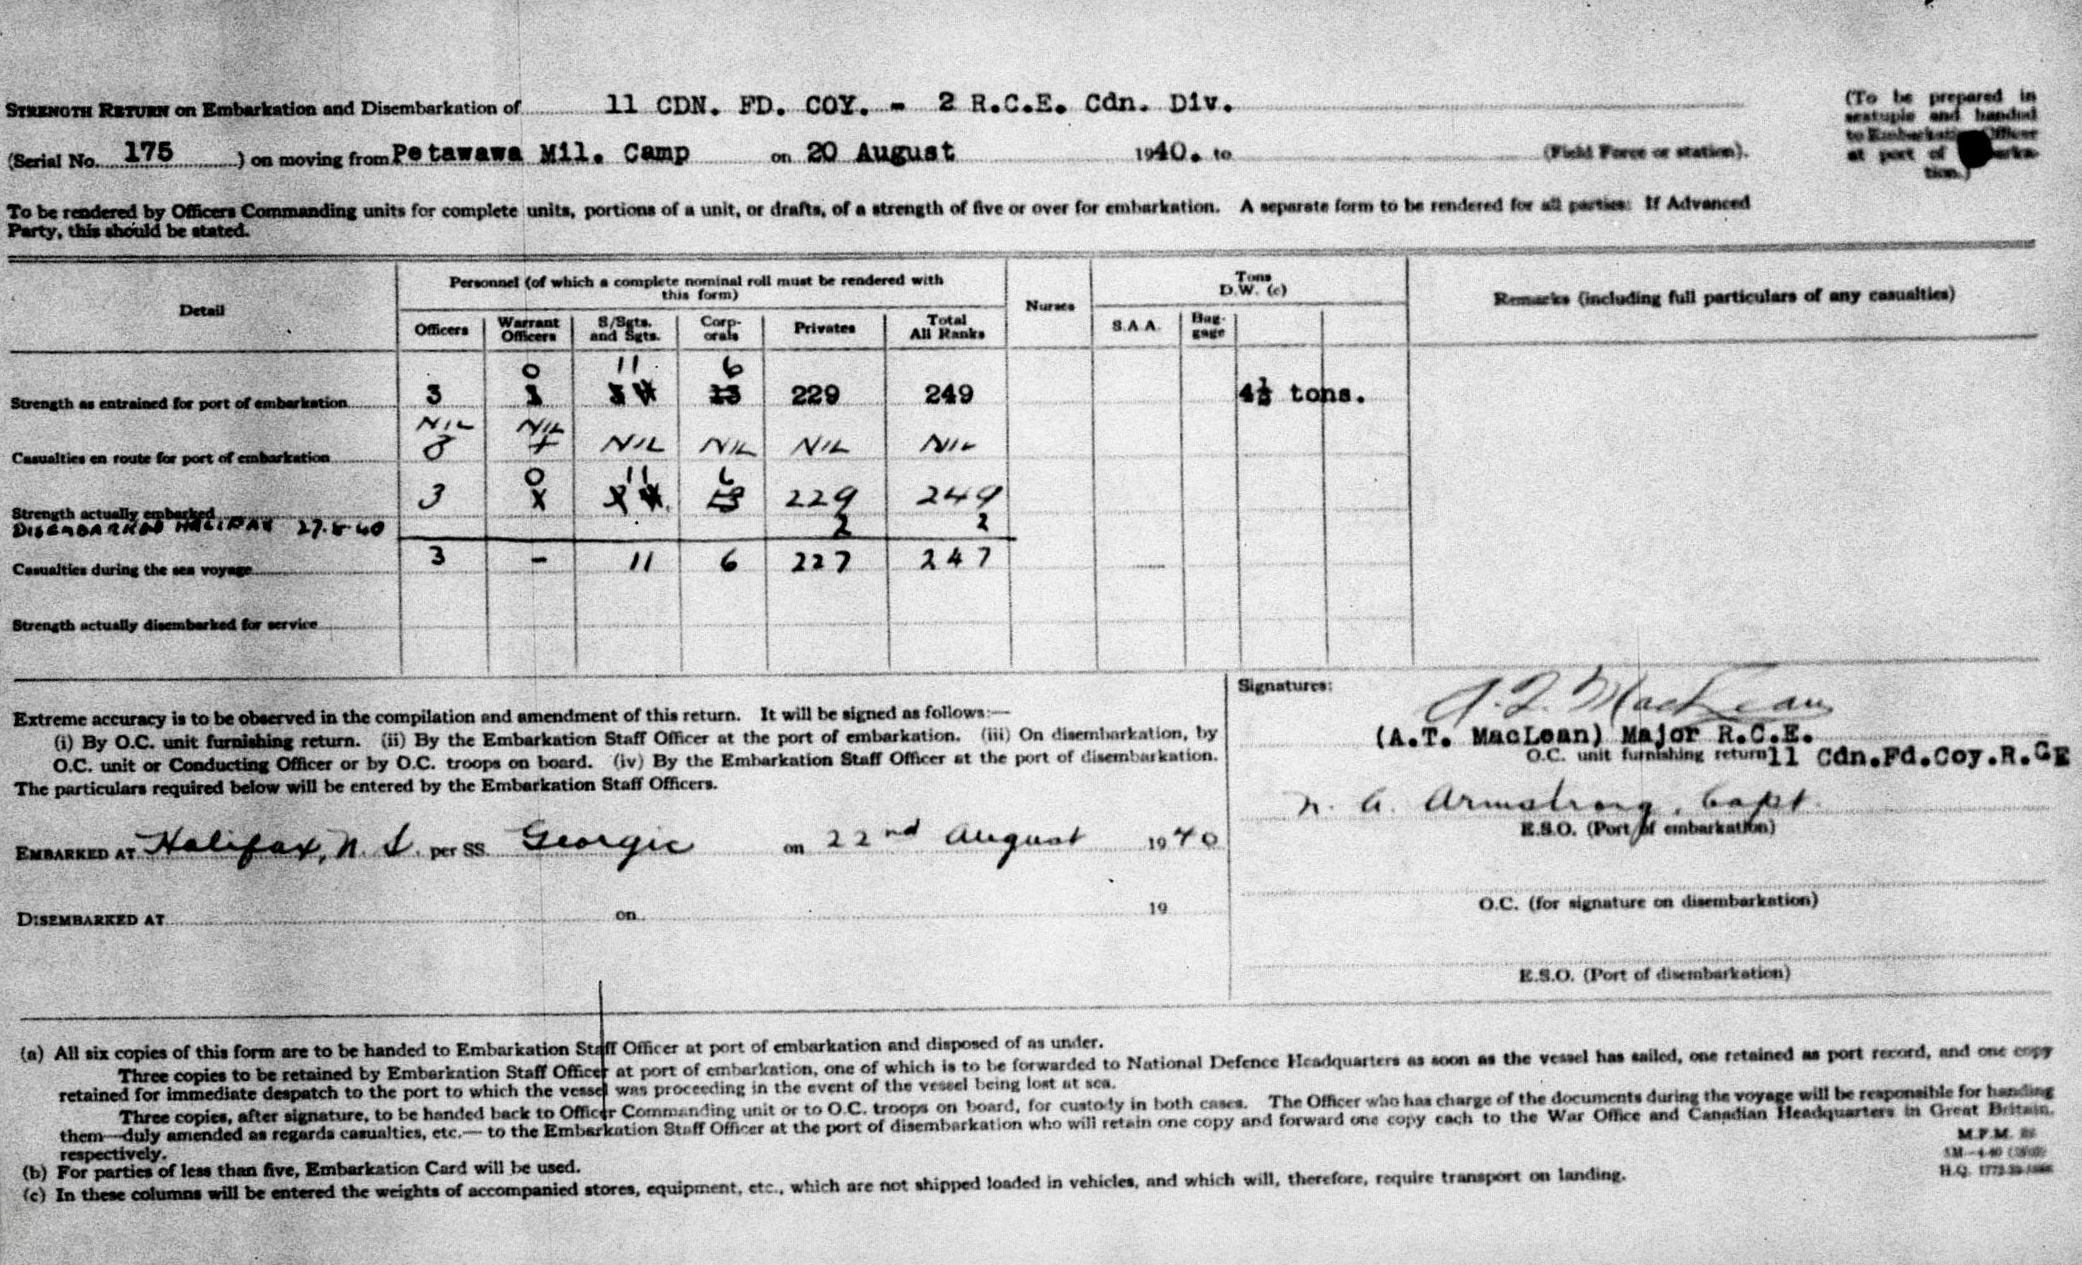 STRENGTH RETURN on Embarkation and Disembarkation of 11 CDN. FD. COY. - 2 R.C.E. Cdn. Div.
(Serial No. 175 ) on moving from Petawawa Mil. Camp on 20 August 1940. to (Field Force or station).
(To be prepared in
sextuple and handed
to Embarkation Officer
at port of
tion.)
To be rendered by Officers Commanding units for complete units, portions of a unit, or drafts, of a strength of five or over for embarkation. A separate form to be rendered for all parties: If Advanced
Party, this should be stated.
Detail
Personnel (of which a complete nominal roll must be rendered with
this form)
Officers Warrant Officers S/Sgts. and Sgts. Corp- orals Privates Total All Ranks
Nurses
Tons
D.W. (c)
S.A.A. Bag- gage
Remarks (including full particulars of any casualties)
0 11 6
Strength as entrained for port of embarkation 3 13 229 249 4½ tons.
NIL NIL
Casualties en route for port of embarkation NIL NIL NIL NIL
0 11 6
Strength actually embarked 3 229 249
DISEMBARKED HALIFAX 27-8-40 2 2
Casualties during the sea voyage 3 - 11 6 227 247
Strength actually disembarked for service
Extreme accuracy is to be observed in the compilation and amendment of this return. It will be signed as follows:—
(i) By O.C. unit furnishing return. (ii) By the Embarkation Staff Officer at the port of embarkation. (iii) On disembarkation, by
O.C. unit or Conducting Officer or by O.C. troops on board. (iv) By the Embarkation Staff Officer at the port of disembarkation.
The particulars required below will be entered by the Embarkation Staff Officers.
EMBARKED AT Halifax, N.S. per SS. Georgic on 22nd August 1940
DISEMBARKED AT on 19
Signatures:
A.T. MacLean
(A.T. MacLean) Major R.C.E.
O.C. unit furnishing return 11 Cdn.Fd.Coy.R.CE
N. A. Armstrong, Capt.
E.S.O. (Port of embarkation)
O.C. (for signature on disembarkation)
E.S.O. (Port of disembarkation)
(a) All six copies of this form are to be handed to Embarkation Staff Officer at port of embarkation and disposed of as under.
Three copies to be retained by Embarkation Staff Officer at port of embarkation, one of which is to be forwarded to National Defence Headquarters as soon as the vessel has sailed, one retained as port record, and one copy
retained for immediate despatch to the port to which the vessel was proceeding in the event of the vessel being lost at sea.
Three copies, after signature, to be handed back to Officer Commanding unit or to O.C. troops on board, for custody in both cases. The Officer who has charge of the documents during the voyage will be responsible for handing
them—duly amended as regards casualties, etc.—to the Embarkation Staff Officer at the port of disembarkation who will retain one copy and forward one copy each to the War Office and Canadian Headquarters in Great Britain,
respectively.
(b) For parties of less than five, Embarkation Card will be used.
(c) In these columns will be entered the weights of accompanied stores, equipment, etc., which are not shipped loaded in vehicles, and which will, therefore, require transport on landing.
M.F.M.
H.Q. 1772-39-